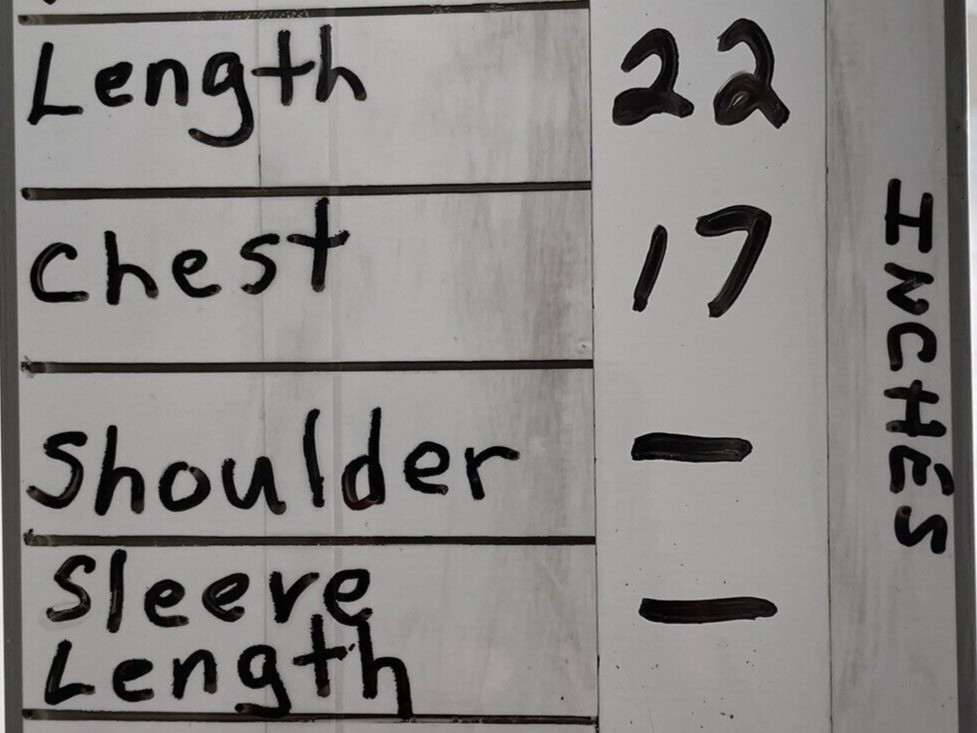 Length 22
Chest 17
Shoulder —
Sleeve —
Length
INCHES